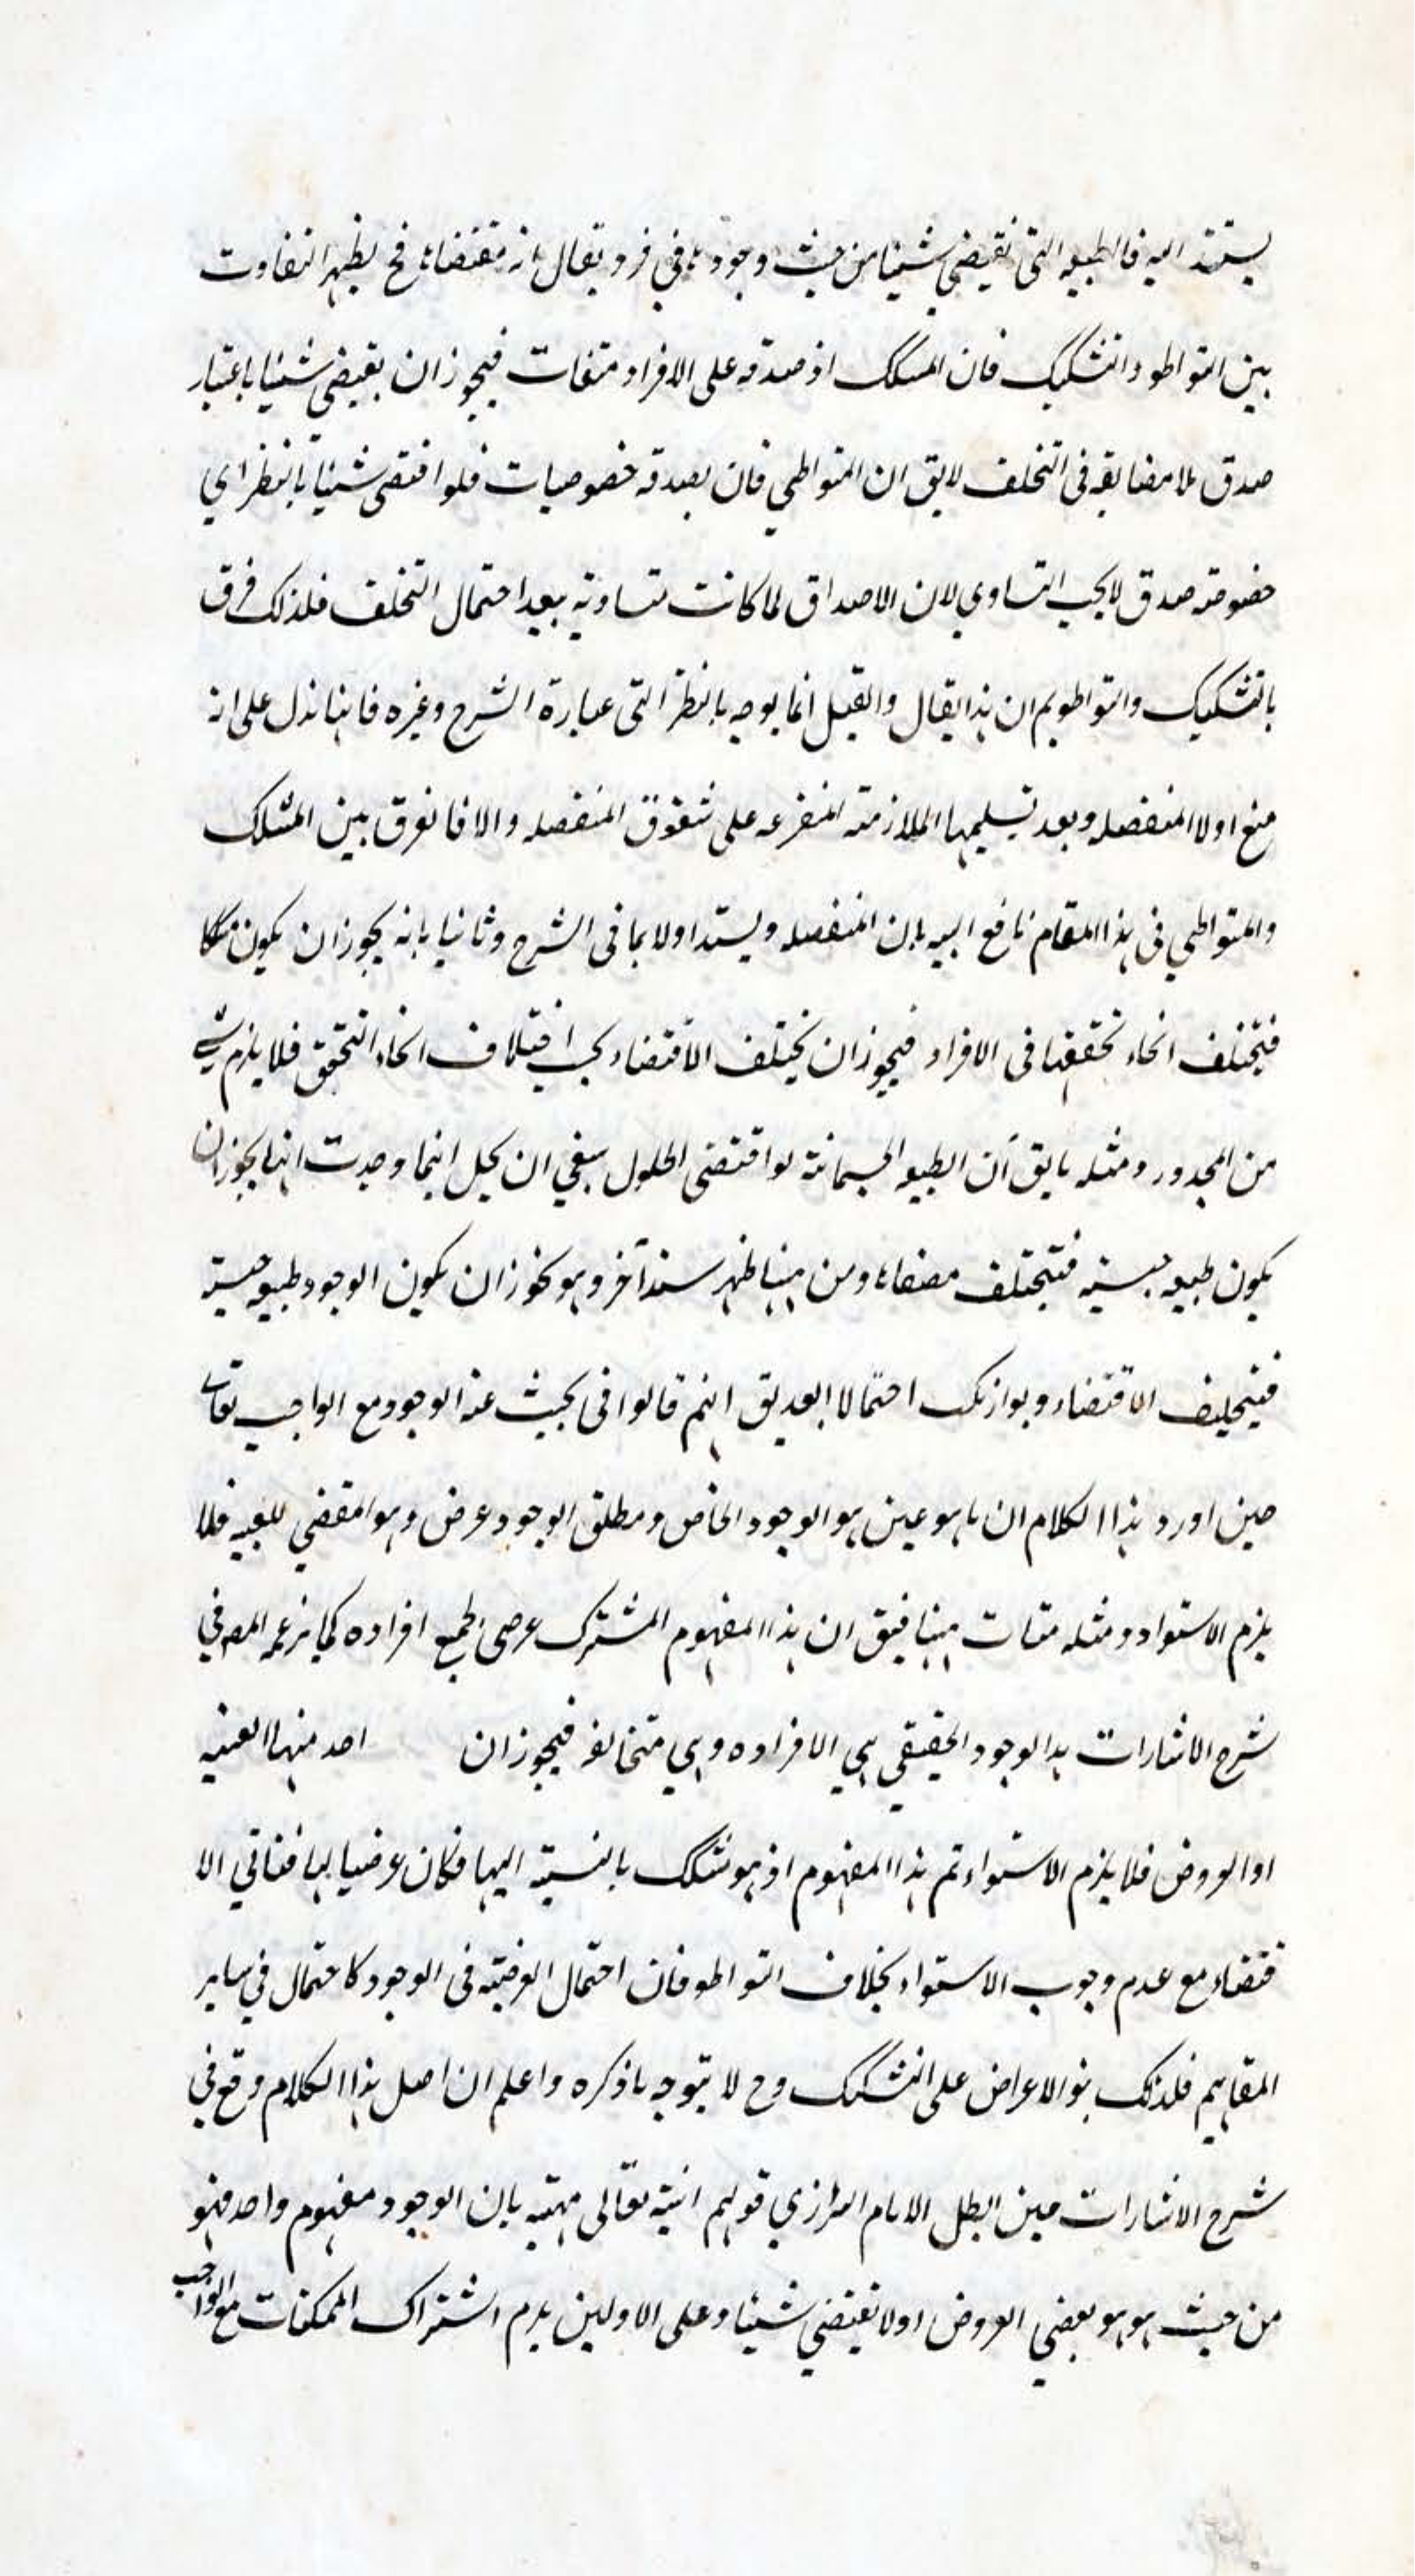 يستند اليه فالطبيعه التى تقيضي شيئا من حيث وجودها في فرد يقال انه مقتضاها فح يظهر التفاوت
بين التواطو والتشكيك فان المسكك اذ صدقه على الافراد متفات فيجوز ان يقيضي شيئا باعتبار
صدق بلا مضايقه فى التخلف لايق ان المتواطي فان بصدقه خصوصيات فلو اقتضى شيئا بالنظر اي
خصوصته صدق لايجب التساوي لان الاصداق لما كانت متساوية يبعد احتمال التخلف فلذلك فرق
بالتشكيك والتواطو يم ان هذا يقال والقيل انما يوجه بالنظر التى عبارة الشرح وغيره فانها تدل على انه
منع اولا المنفصله وبعد تسليمها الملازمته المتفرعه على شقوق المنفصله والا فا لفرق بين المشكك
والمتواطي فى هذا المقام نافع اليه بان المنفصله ويستد اولا بما فى الشرح وثانيا بانه يجوز ان يكون مشككا
فيختلف انحاء تحققها فى الافراد فيجوز ان يختلف الاقتضاء بحسب اختلاف انحاء التحقق فلا يلزم شي
من المحدور ومثله مايق ان الطبيعه الجسمانية لو اقتضى الحلول ينبغي ان يحل اينما وجدت انها يجوز ان
يكون طبيعه جنسيه فيختلف مقتضاها ومن هنا ظهر سند آخر وهو تجوز ان يكون الوجود طبيعه جنسية
فيختلف الاقتضاء وهو ازيك احتمالا ابعد يق انهم قالوا فى بحث عنه الوجود مع الواجب تعالى
حين اورد هذا الكلام ان ما هو عين هو الوجود الخاص ومطلق الوجود عرض وهو المقضي للعينيه فلا
يلزم الاستواء ومثله متات هنا فيق ان هذا المفهوم المشترك عرضى لجميع افراده كما يزعمه المص في
شرح الاشارات بدا لوجود الحقيقي هي الافراده وهي متخالفه فيجوز ان احد منها العينيه
او العروض فلا يلزم الاستواء ثم هذا المفهوم اذ هو مشكك بالنسبة اليها فكان عرضيا لها فناتي الا
قتضاء مع عدم وجوب الاستواء بخلاف التواطو فان احتمال العرضيه فى الوجود كا حتمال في ساير
المفاهيم فلذلك بنو الاعراض على التشكيك وح لا يتوجه ما ذكره واعلم ان اصل هذا الكلام وقع في
شرح الاشارات حين ابطل الامام الرازي قولهم انيته تعالى مهيته بان الوجود مفهوم واحد فهو
من حيث هو هو يقضي العروض اولا تقيتضي شيئا وعلى الاولين يلزم اشتراك الممكنات مع الواجب